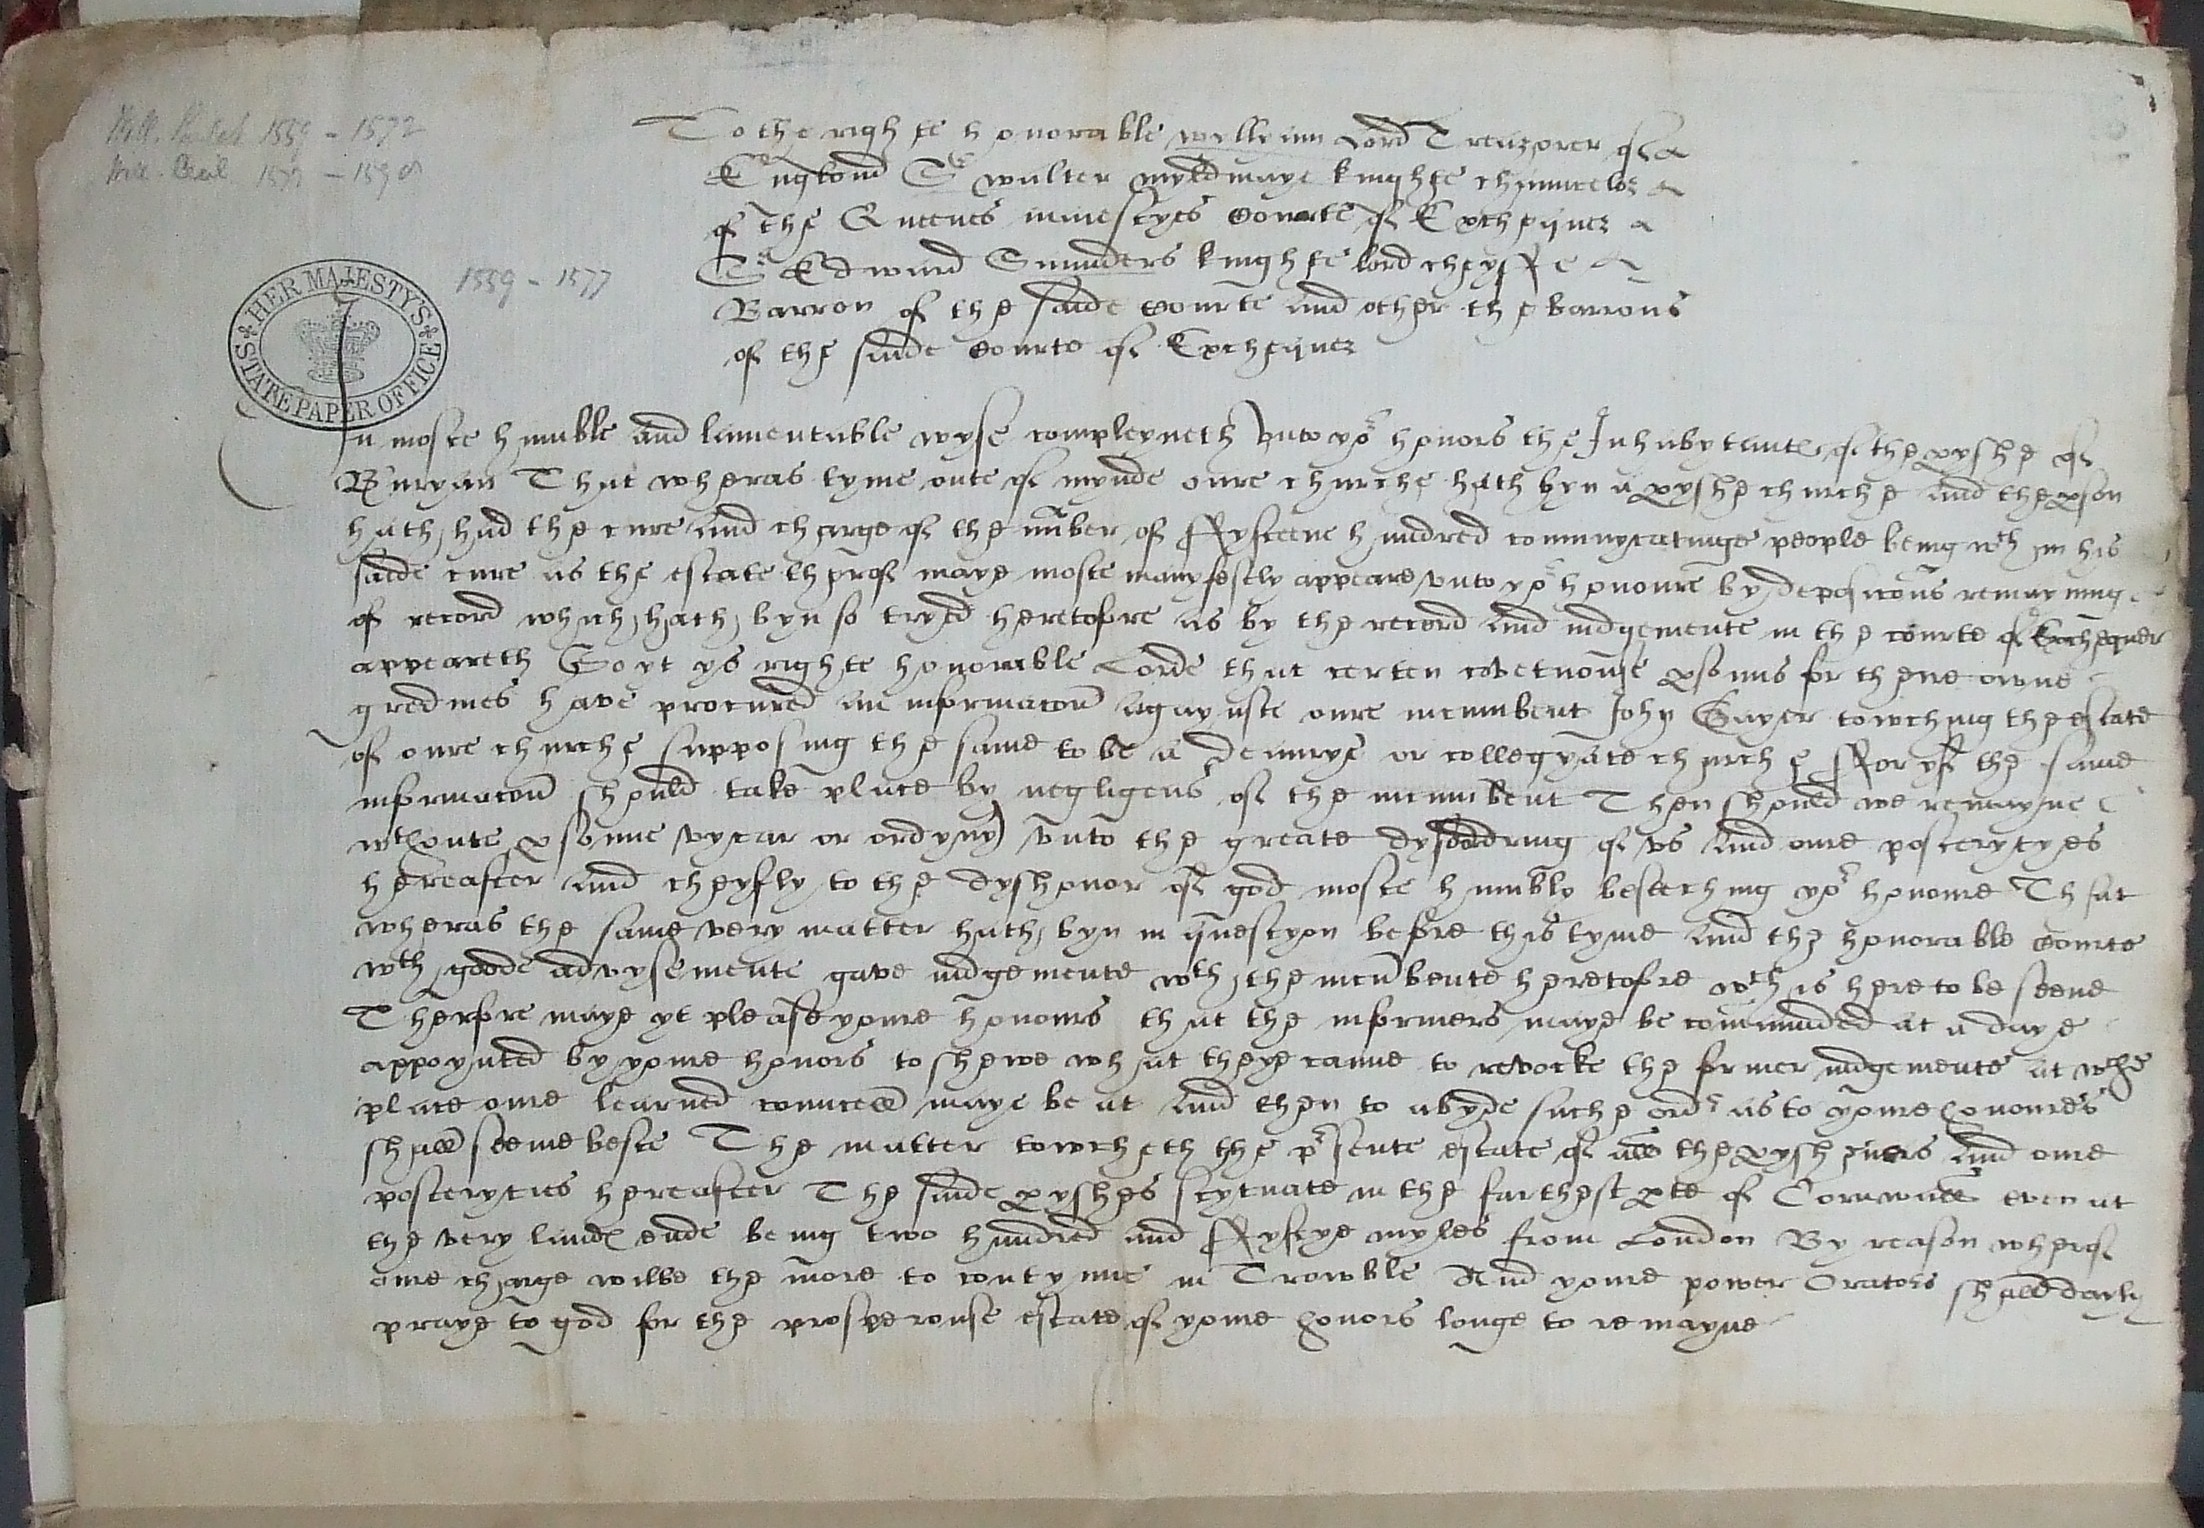 Will. Paulet 1559 - 1572
Will. Cecil 1572 - 1598
1559 - 1577
HER MAJESTY'S
STATE PAPER OFFICE
To the righte honorable wyllyam Lord Treazorer of
England Sr walter myldmaye knighte chauncelor
of the Queenes maiestyes Courte of Exchequer
Sr Edward Saunders knighte lord cheyffe
Barron of the saide Courte and other the barrons
of the saide Courte of Exchequer
In moste humble and lamentable wyse compleyneth vnto yor honors the Inhabytantes of the pyshe of
Buryan That wheras tyme oute of mynde oure churche hath byn a pyshe churche and the pson
hath had the cure and charge of the nūber of Fyfteene hundred comunycatinge people being wth in his
saide cure as the estate therof maye moste manyfestly appeare vnto yor honoure by deposicons remayning
of record which hath byn so tryed heretofore as by the record and iudgemente in the courte of Exchequer
appeareth So yt ys righte honorable Lorde that certen covetuouse psonns for there owne
gredines have procured an informacon agaynste oure incumbent John Gayer towching the estate
of oure churche supposing the same to be a deanrye or collegyate churche For yf the same
informacon should take place by negligens of the incumbent Then should we remayne
wthoute psonne vycar or ordynary vnto the greate dysordring of vs and oure posterytyes
hereafter and cheyfly to the dyshonor of god moste humbly beseching yor honoure That
wheras the same very matter hath byn in questyon before this tyme and the honorable Courte
wth goode advysemente gave iudgemente wth the incūbente heretofore wch is here to be seene
Therfore maye yt please youre honours that the informers maye be commaunded at a daye
appoynted by youre honors to shewe what theye canne to revocke the former iudgemente at wche
place oure learned councell maye be at and then to abyde suche order as to youre honoures
shall seeme beste The matter towcheth the prsente estate of all the pyshners and oure
posteryties hereafter The saide pyshes scytuate in the farthest pte of Cornwall even at
the very landes ende being two hundred and Fyftye myles from London By reason wherof
oure charge wilbe the more to contynue in Trowble And youre power Orators shall dayly
praye to god for the prosperouse estate of youre honors longe to remayne